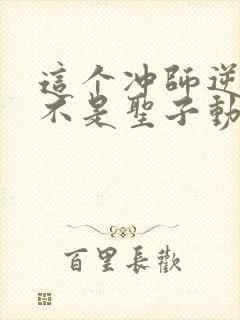 這个冲師逆
不是聖子動
百里長歡